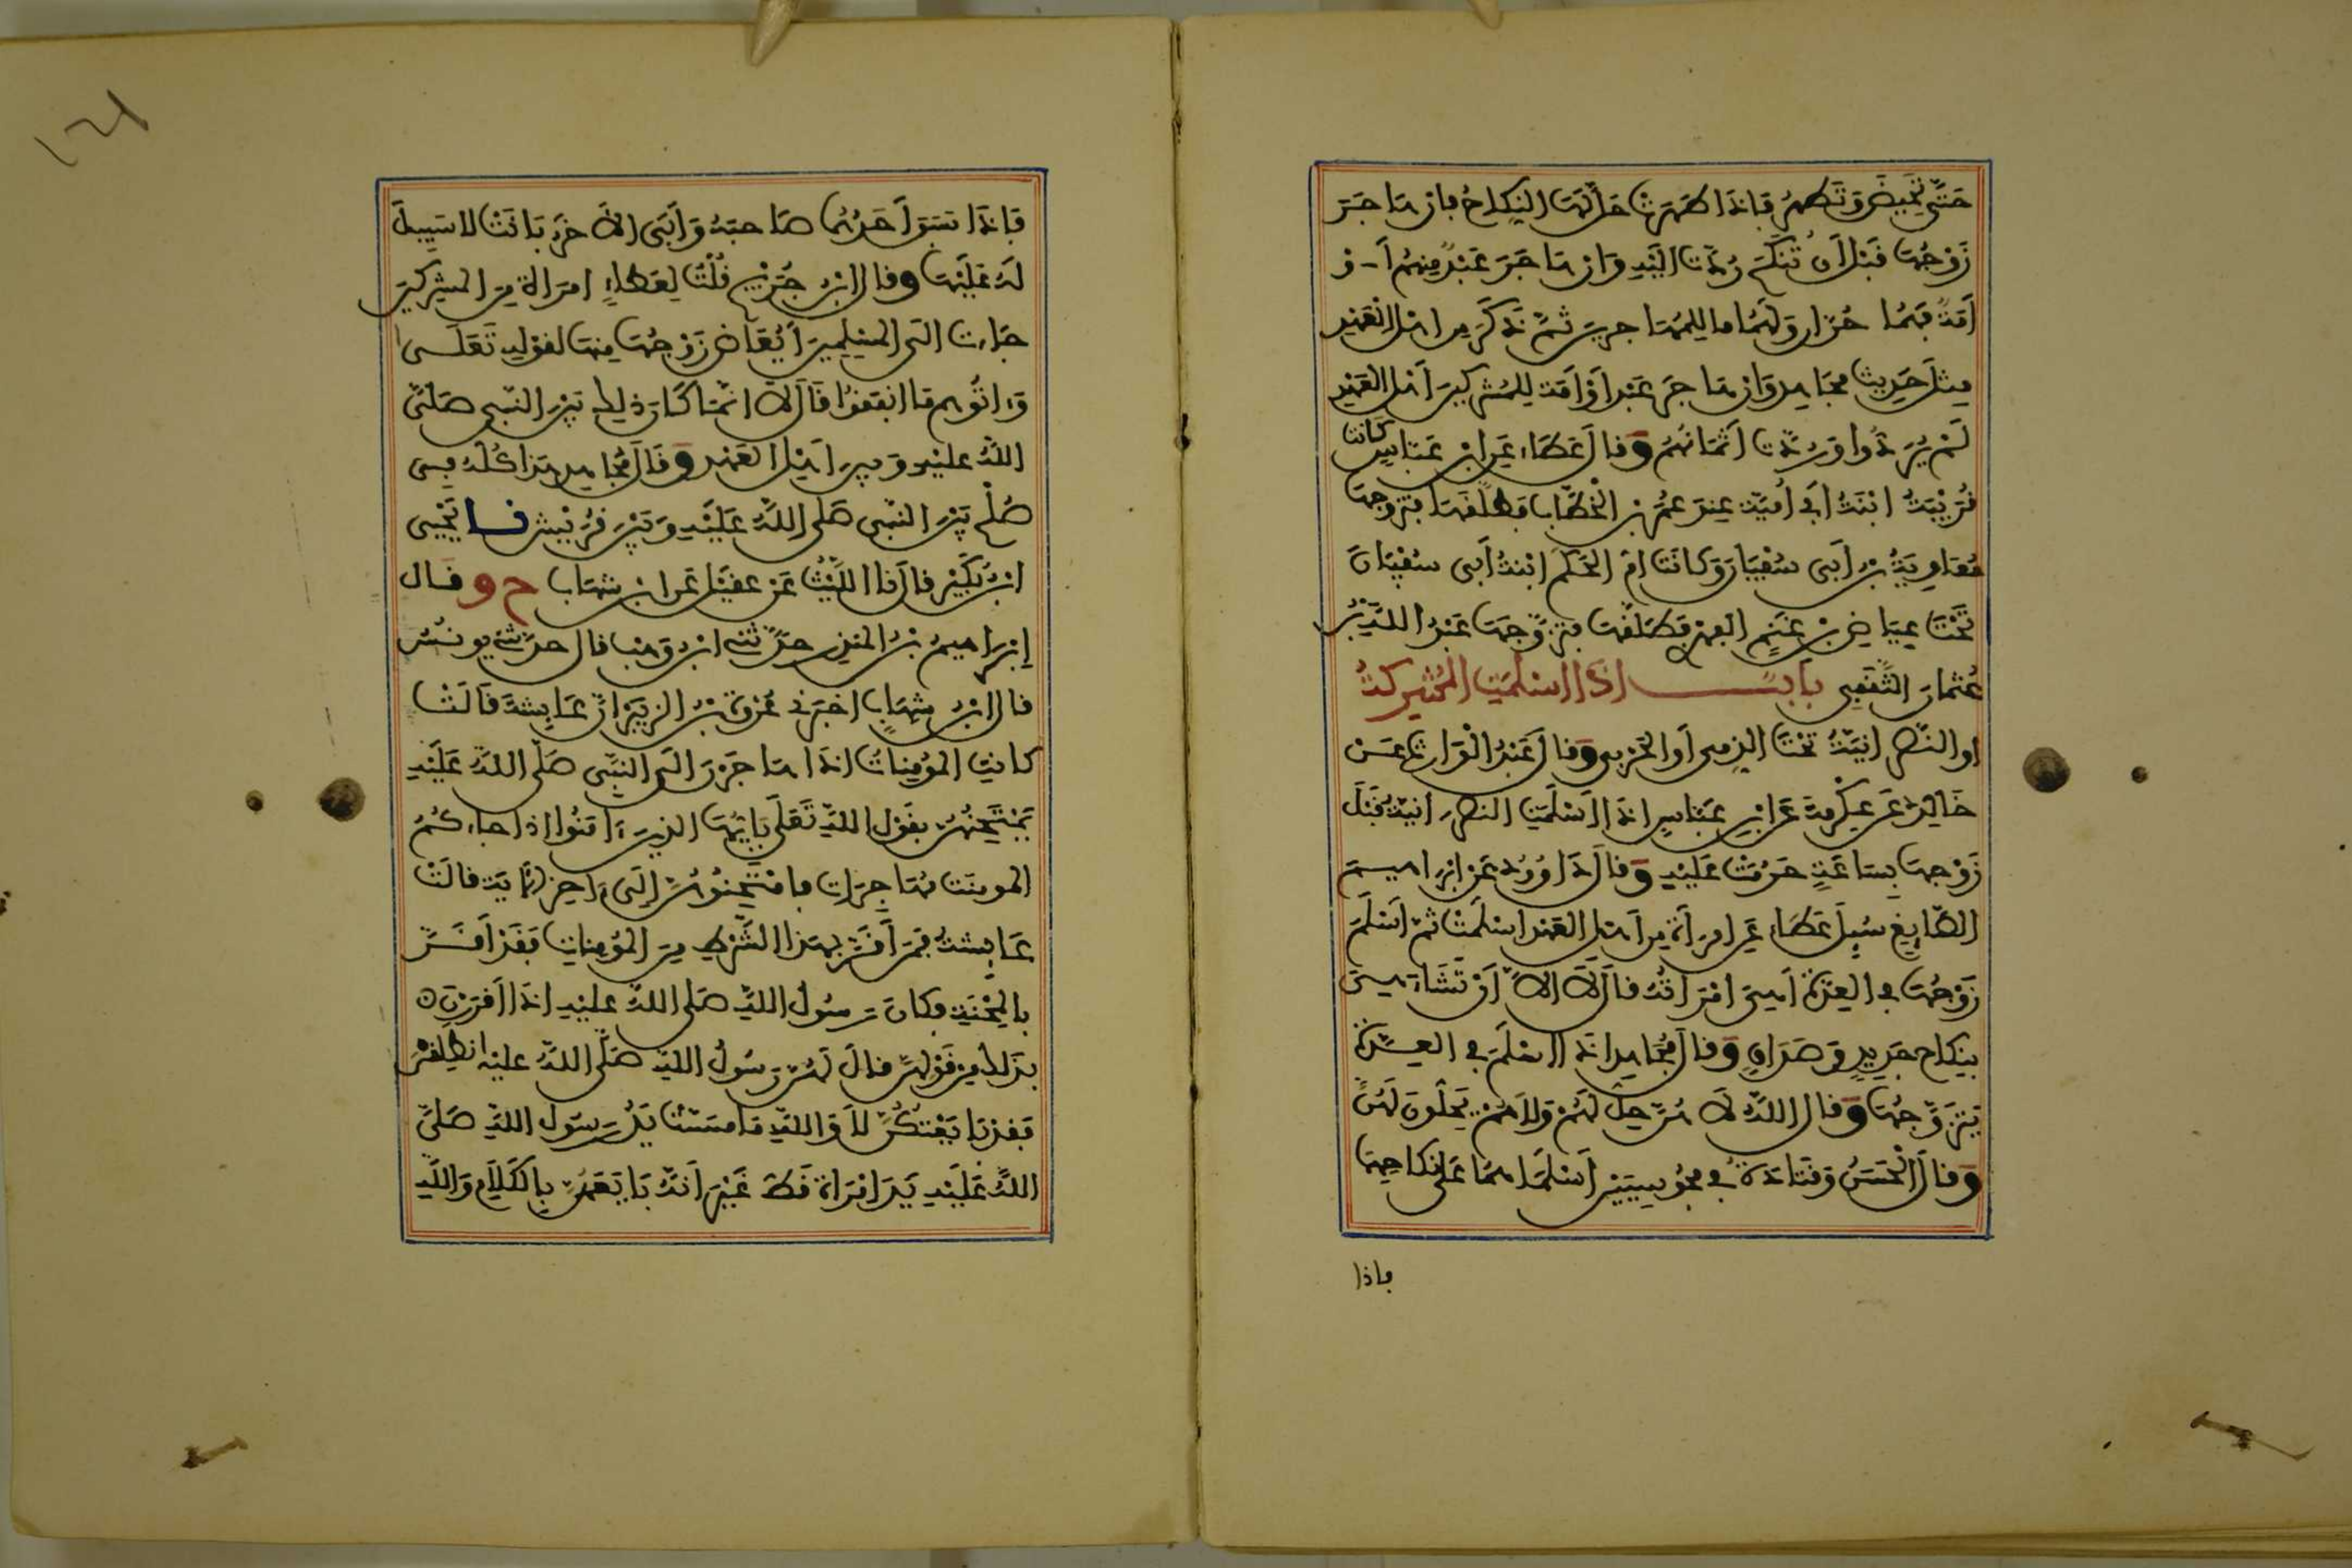 حَتَّى تَحِيضَ وَتَطْهُرَ فَإِذَا طَهُرَتْ حَلَّ لَهَا النِّكَاحُ فإن هَاجَرَ
زَوْجُهَا قَبْلَ أَنْ تَنكِحَ رُدَّتْ إِلَيْهِ وَإن هَاجَرَ عَبْدٌ مِنْهُمْ أَوْ
أَمَةٌ فَهُمَا حُرَّان وَلَهُمَا ما لِلْمُهَاجرين ثُمَّ ذَكَرَ مِن اهْلِ الْعَهْدِ
مِثْلَ حَدِيثِ مُجَاهِد وَإن هَاجَرَ عَبْدٌ أَوْ أَمَة لِلْمُشْرِكِينَ أَهْلِ الْعَهْدِ
لَمْ يُرَدُّوا وَرُدَّتْ أَثْمَانُهُمْ وَقال عَطَاء عَنِ ابْنِ عَبَّاسٍ كَانَت
قُرَيْبَةُ ابْنَةُ أبي أُمَيَّةَ عِنْدَ عُمَرَ بْنِ الْخَطَّابِ فَطَلَّقَهَا فتزوجها
مُعَاوِيَةُ بْنُ أَبِي سُفْيَان وَكَانَت امُّ الْحَكَمِ ابْنَةُ أَبِي سُفْيَانَ
تَحْتَ عِيَاضِ بْنِ غَنْمٍ الفِهْرِي فَطَلَّقَهَا فَتَزَوَّجَهَا عَبْدُ اللَّهِ بْنُ
عُثْمَانَ الثَّقَفِي بَابٌ إذَا اسْلَمَتِ الْمُشْرِكَةُ
او النَّصْرَانِيَّةُ تَحْتَ الذِمِّي أَوِ الْحَرْبِي وَقال عَبْدُ الْوَارِثِ عَنْ
خَالِدٍ عَن عِكْرِمَةَ عَن ابْنِ عَبَّاسٍ اذَا اسْلَمَتِ النصْرَانِيَّة قَبْلَ
زَوْجِهَا بِسَاعَةٍ حَرُمَتْ عَلَيْهِ وَقال دَاوُدُ عَنْ إبْرَاهِيمَ
الصَّايِغِ سُئِلَ عَطَاء عَنِ امْرَأَة مِن أَهْلِ العَهْدِ اسْلَمَتْ ثُمَّ أَسْلَمَ
زَوْجُهَا في العِدَّةِ أَهِيَ امْرَأَتُهُ قَالَ لَا الاَّ أَنْ تَشَاءَ هِيَ
بِنِكَاح جَدِيدٍ وَصَدَاقٍ وَقال مُجَاهِد اذَا اسْلَمَ في العِدَّةِ
يَتَزَوَّجُهَا وَقال اللَّهُ لَا هُنَّ حِلٌّ لَهُمْ وَلاَ هُمْ يَحِلُّونَ لَهُنَّ
وَقال الْحَسَنُ وَقَتَادَةُ في مَجُوسِيَّيْنِ أَسْلَمَا هُمَا عَلَى نِكَاحِهِمَا
فاذا
فَإِذَا سَبَقَ أَحَدُهُمَا صَاحِبَهُ وَأَبَى الآخَرُ بَانَتْ لا سَبِيلَ
لَهُ عَلَيْهَا وقال ابْنُ جُرَيْجٍ قُلْتُ لِعَطَاءٍ امْرَأَة مِن المُشْرِكِينَ
جَاءت إلَى الْمُسْلِمِينَ أَيُعَاضُ زَوْجُهَا مِنْهَا لقَوْلِهِ تَعَلَى
وَءاتُوهُم مَا انفَقُوا قَالَ لَا انَّمَا كَانَ ذلِكَ بَيْنَ النَّبِي صَلَّى
اللَّهُ عليْهِ وَبين اهْلِ العَهْدِ وَقَالَ مُجَاهِد هَذَا كُلُّهُ فِي
صُلْحٍ بَيْنَ النَّبِي صَلَّى اللَّهُ عَلَيْهِ وَبَيْنَ قُرَيْش نا يَحْيَى
ابْنُ بُكَيْرٍ قال نا اللَّيْثُ عَنْ عُقَيْل عَن ابن شِهَاب ح وقال
إِبْرَاهِيمُ بْنُ الْمُنْذِر حَدَّثَنِي ابْنُ وَهْب قال حَدثني يُونُسُ
قال ابْنُ شِهَابٍ اخْبَرَنِي عُرْوَة بْنُ الزُّبَيْر أنَّ عَايِشَةَ قَالَتْ
كَانتِ الْمُؤْمِنَاتُ اذَا هَاجَرْنَ إلَى النَّبِي صَلَّى اللَّهُ عَلَيْهِ
يَمْتَحِنُهُنَّ بِقَوْل اللَّهِ تَعَلَى يَايُّهَا الذِينَ ءَامَنُوا إذا جاءكُمُ
المومِنَت مُهَاجِرَات فامْتَحِنُوهُنَّ إِلَى ءَاخِرِ الاَيَة قالَتْ
عَايِشَةُ فَمَنْ أَقَرَّ بِهَذَا الشَّرْطِ مِنَ الْمُؤْمِنَاتِ فَقَدْ أَقَرَّ
بِالْمِحْنَةِ فكَانَ رَسُولُ اللَّهِ صَلَّى اللهُ عليْهِ اذَا أَقْرَرْنَ
بِذَلِكَ مِنْ قَوْلِهِنَّ قال لَهُنَّ رَسُولُ اللَّهِ صَلَّى اللَّهُ عليْه انْطَلِقْنَ
فَقَدْ بَايَعْتُكُنَّ لاَ وَاللَّهِ مَا مَسَّتْ يَدُ رَسُول اللَّهِ صَلَّى
اللَّهُ عَلَيْهِ يَدَ امْرَأة قَطُّ غَيْرَ أَنَّهُ بَايَعَهُنَّ بِالكَلاَمِ وَاللَّهِ